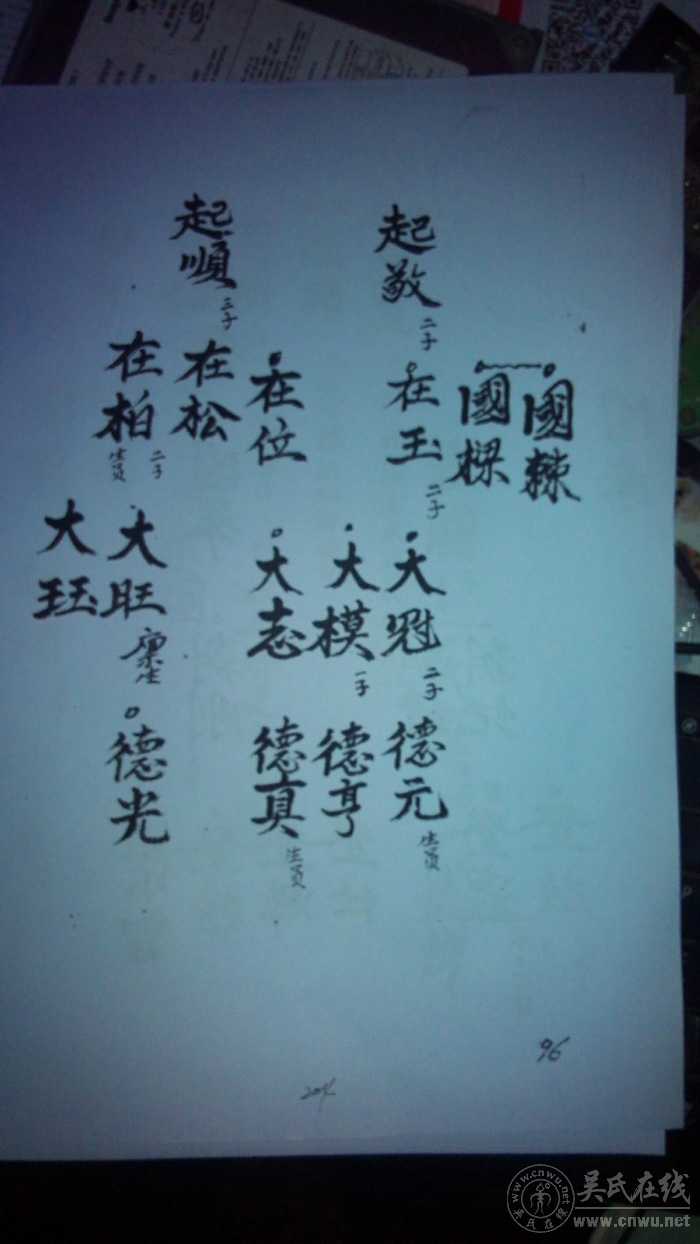 國棟
國樑
起敬 二子
在玉 二子
大冠 二子
德元 生員
大模 一子
德亨
在位
大志
德真 生員
起順 三子
在松
在柏 生員 二子
大旺 廩生
德光
大珏
96
204
吴氏在线
www.cnwu.net